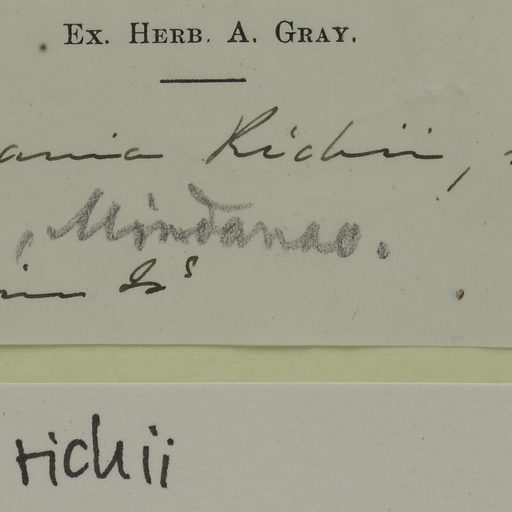 Ex. Herb. A. Gray.
ania Richii,
, Mindanao.
Is
richii